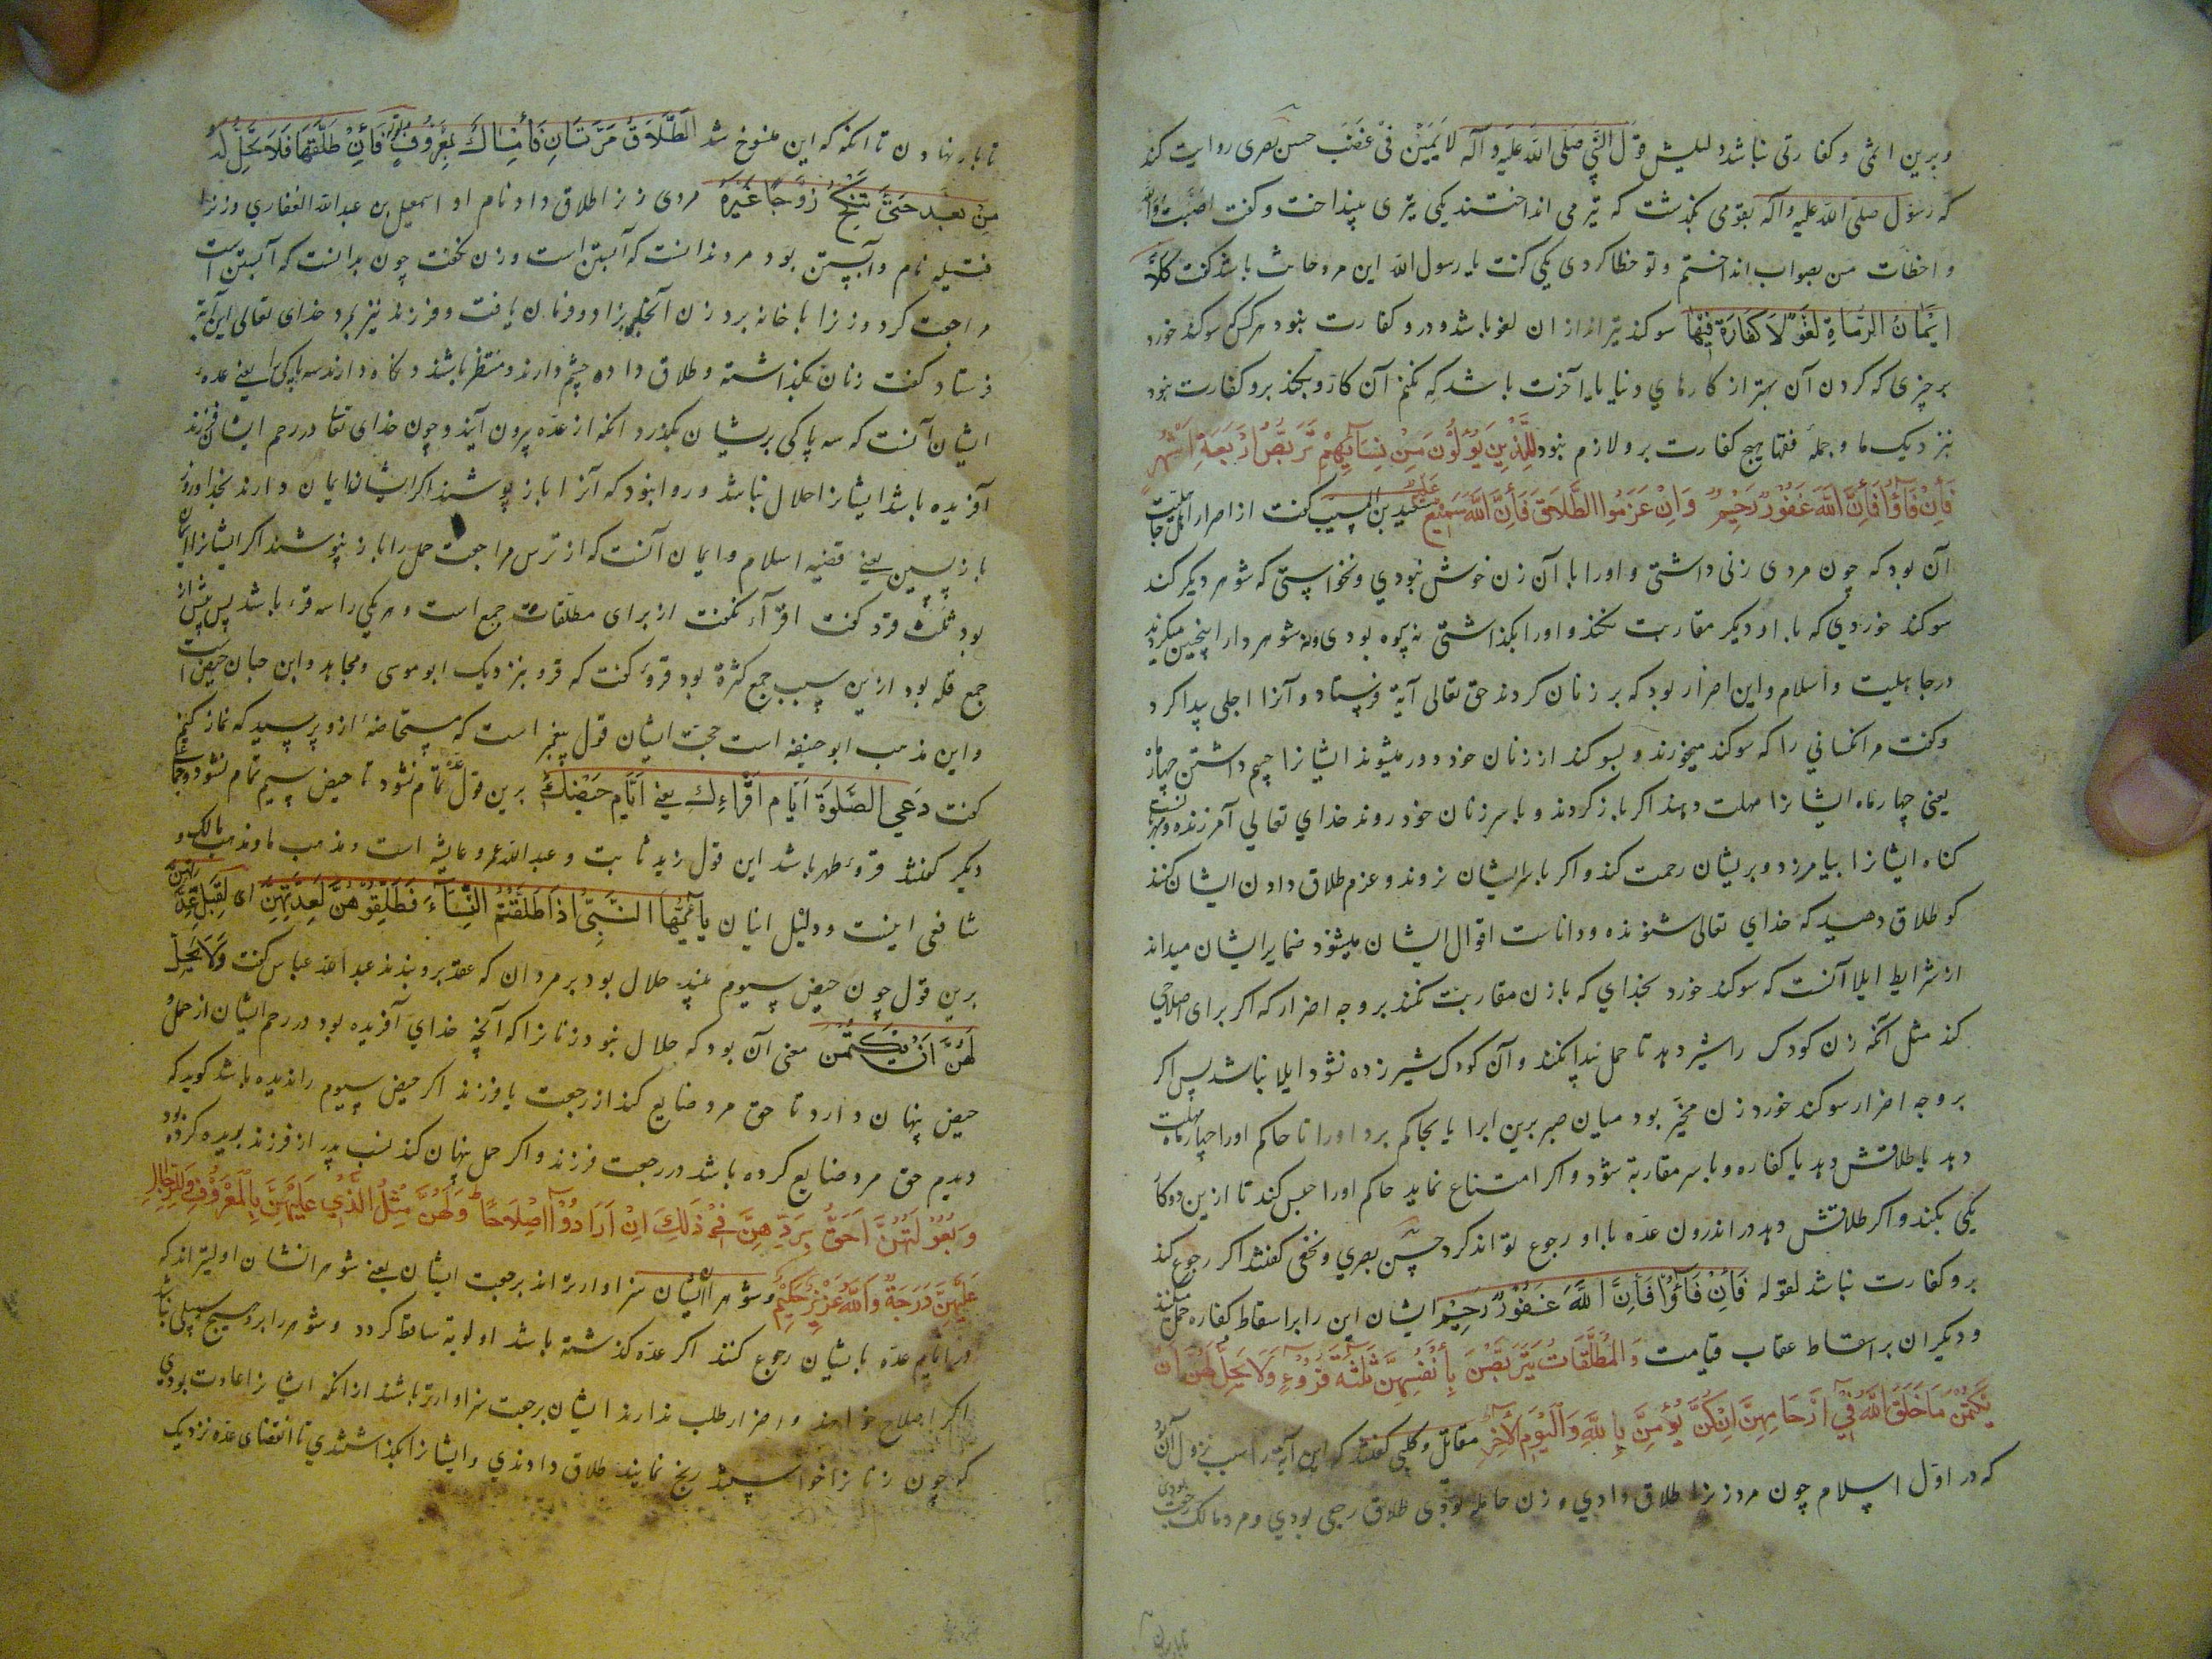 و برین اثمی و کفارتی نباشد دلیلش قول النَّبِیِّ صَلَّی اللهُ عَلَیهِ وَ آلِه لَا یَمینَ فی غَضَبٍ حسن بصری روایت کند
که رسول صلی الله علیه وآله بقومی بگذشت که تیر می انداختند یکی تیری بینداخت و گفت اصبت والله
و اخطات من بصواب انداختم و تو خطا کردی یکی گفت یا رسول الله این مرد حانث باشد گفت کلا
اَیمانُ الرُّماةِ لَغوٌ لَا کَفّارَةَ فیها سوکند تیراندازان لغو باشد و درو کفارت نبود هرکس که سوکند خورد
بر چیزی که کردن آن بهتر از کارهای دنیا یا آخرت باشد که نکنم آن کار و بکند برو کفارت نبود
نزدیک ما و جملهٔ فقها هیچ کفارت برو لازم نبود لِلَّذِینَ یُؤْلُونَ مِنْ نِسَائِهِمْ تَرَبُّصُ اَرْبَعَةِ اَشْهُرٍ
فَاِنْ فَاؤُا فَاِنَّ اللهَ غَفُورٌ رَحِیمٌ وَاِنْ عَزَمُوا الطَّلَاقَ فَاِنَّ اللهَ سَمِیعٌ عَلِیمٌ سعید بن المسیب کفت از اصرار اهل جاهلیت
آن بود که چون مردی زنی داشتی و اورا با آن زن خوش نبودی و نخواستی که شوهر دیکر کند
سوکند خوردی که با او دیکر مقاربت نکند و اورا بگذاشتی نه بیوه بودی و نه شوهردار اینچنین میکردند
در جاهلیت و اسلام و این اضرار بود که بر زنان کردند حق تعالی آیة فرستاد و آنرا اجلی پیدا کرد
و کفت مر انکسانی را که سوکند میخورند و بسوکند از زنان خود دور میشوند ایشانرا چشم داشتن چهار ماه است
یعنی چهار ماه ایشانرا مهلت دهند اکر باز کردند و با سر زنان خود روند خدای تعالی آمرزنده و مهربانست
کناه ایشانرا بیامرزد و بریشان رحمت کند و اکر با سر ایشان نروند و عزم طلاق دادن ایشان کنند
کو طلاق دهید که خدای تعالی شنونده و داناست اقوال ایشان میشنود ضمایر ایشان میداند
از شرایط ایلا آنست که سوکند خورد بخدای که با زن مقاربت نکند بر وجه اضرار که اکر برای اصلاحی
کند مثل آنکه زن کودک را شیر دهد تا حمل پیدا نکند و آن کودک شیرزده نشود ایلا نباشد پس اکر
بر وجه اضرار سوکند خورد زن مخیّر بود میان صبر برین ایلا یا بحاکم برد اورا تا حاکم اورا چهار ماه مهلت
دهد یا طلاقش دهد یا کفاره و با سر مقاربة شود و اکر امتناع نماید حاکم اورا حبس کند تا ازین دو کار
یکی بکند و اکر طلاقش دهد در اندرون عده با او رجوع تواند کرد حسن بصری و نخعی کفتند اکر رجوع کند
برو کفارت نباشد لقوله فَاِنْ فَاؤُا فَاِنَّ اللهَ غَفُورٌ رَحِیمٌ ایشان این را بر اسقاط کفاره حمل میکنند
و دیکران بر اسقاط عقاب قیامت وَالْمُطَلَّقَاتُ یَتَرَبَّصْنَ بِأَنْفُسِهِنَّ ثَلٰثَةَ قُرُوءٍ وَلَا یَحِلُّ لَهُنَّ اَنْ
یَکْتُمْنَ مَا خَلَقَ اللهُ فِی اَرْحَامِهِنَّ اِنْ کُنَّ یُؤْمِنَّ بِاللهِ وَالْیَوْمِ الْاٰخِرِ مقاتل و کلبی کفتند که این آیة را سبب نزول آن بود
که در اول اسلام چون مرد زنرا طلاق دادی و زن حامله بودی طلاق رجعی بودی و مرد مالک رجعت بودی
تا بار نهادن تا انکه که این منسوخ شد اَلطَّلَاقُ مَرَّتَانِ فَاِمْسَاكٌ بِمَعْرُوفٍ بقوله فَاِنْ طَلَّقَهَا فَلَا تَحِلُّ لَهُ
مِنْ بَعْدُ حَتَّى تَنْکِحَ زَوْجًا غَیْرَهُ مردی زنرا طلاق داد نام او اسمعیل بن عبدالله الغفاری و زنرا
قتیله نام و آبستن بود مرد ندانست که آبستن است و زن نکفت چون بدانست که آبستن است
مراجعت کرد و زنرا با خانه برد زن آنجا بزاد و فرمان یافت و فرزند نیز بمرد خدای تعالی این آیة
فرستاد کفت زنان بگذاشته و طلاق داده چشم دارند و منتظر باشند و نکاه دارند سه پاکی را یعنی عده
ایشان آنست که سه پاکی بریشان بگذرد انکه از عده بیرون آیند و چون خدای تعا در رحم ایشان فرزند
آفریده باشد ایشانرا حلال نباشد و روا نبود که آنرا باز پوشند اکر ایشان ایمان دارند بخدا و روز
بازپسین یعنی قضیه اسلام و ایمان آنست که از ترس مراجعت حمل را باز نپوشند اکر ایشانرا ایمان
بود ثلٰث قرء کفت اقرآء نکفت از برای مطلقات جمع است و هر یکی را سه قرء باشد پس بیش از
جمع قله بود ازین سبب جمع کثرة بود قروء کفت که قرء بنزدیک ابوموسی و مجاهد و ابن حبان حیض است
و این مذهب ابوحنیفه است حجت ایشان قول پیغمبر است که مستحاضه ازو پرسید که نماز کنم
کفت دَعِی الصَّلوٰةَ اَیَّامَ اَقْرَائِكِ یعنی اَیَّامَ حَیْضِكِ برین قول عده تمام نشود تا حیض سیم تمام نشود و جماعتی
دیکر کفتند قرء طهر باشد این قول زید ثابت و عبدالله عمر و عایشه است و مذهب ما و مذهب مالک و
شافعی اینست و دلیل اینان یَا اَیُّهَا النَّبِیُّ اِذَا طَلَّقْتُمُ النِّسَاءَ فَطَلِّقُوهُنَّ لِعِدَّتِهِنَّ ای لِقُبُلِ عِدَّتِهِنَّ
برین قول چون حیض سیوم بیند حلال بود بر مردان که عقد برو بندند عبدالله عباس کفت وَلَا یَحِلُّ
لَهُنَّ اَنْ یَکْتُمْنَ معنی آن بود که حلال نبود زنانرا که آنچه خدای آفریده بود در رحم ایشان از حمل و
حیض پنهان دارد تا حق مرد ضایع کند از رجعت یا فرزند اکر حیض سیوم را ندیده باشد کوید که
دیدم حق مرد ضایع کرده باشد در رجعت فرزند و اکر حمل پنهان کند نسب پدر از فرزند بریده کرده بود
وَبُعُولَتُهُنَّ اَحَقُّ بِرَدِّهِنَّ فِی ذٰلِكَ اِنْ اَرَادُوا اِصْلَاحًا وَلَهُنَّ مِثْلُ الَّذِی عَلَیْهِنَّ بِالْمَعْرُوفِ وَلِلرِّجَالِ
عَلَیْهِنَّ دَرَجَةٌ وَاللهُ عَزِیزٌ حَکِیمٌ و شوهران ایشان سزاوارتراند برجعت ایشان یعنی شوهرانشان اولیتراند که
در ایام عده بایشان رجوع کنند اکر عده کذشته باشد اولویة ساقط کردد و شوهر را برو هیچ سبیلی نباشد
اکر اصلاح خواهند و اضرار طلب ندارند ایشان برجعت سزاوارتر باشند از انکه ایشانرا عادت بودی
که چون زنانرا خواستندی رنج نمایند طلاق دادندی و ایشانرا بگذاشتندی تا انقضای عده نزدیک